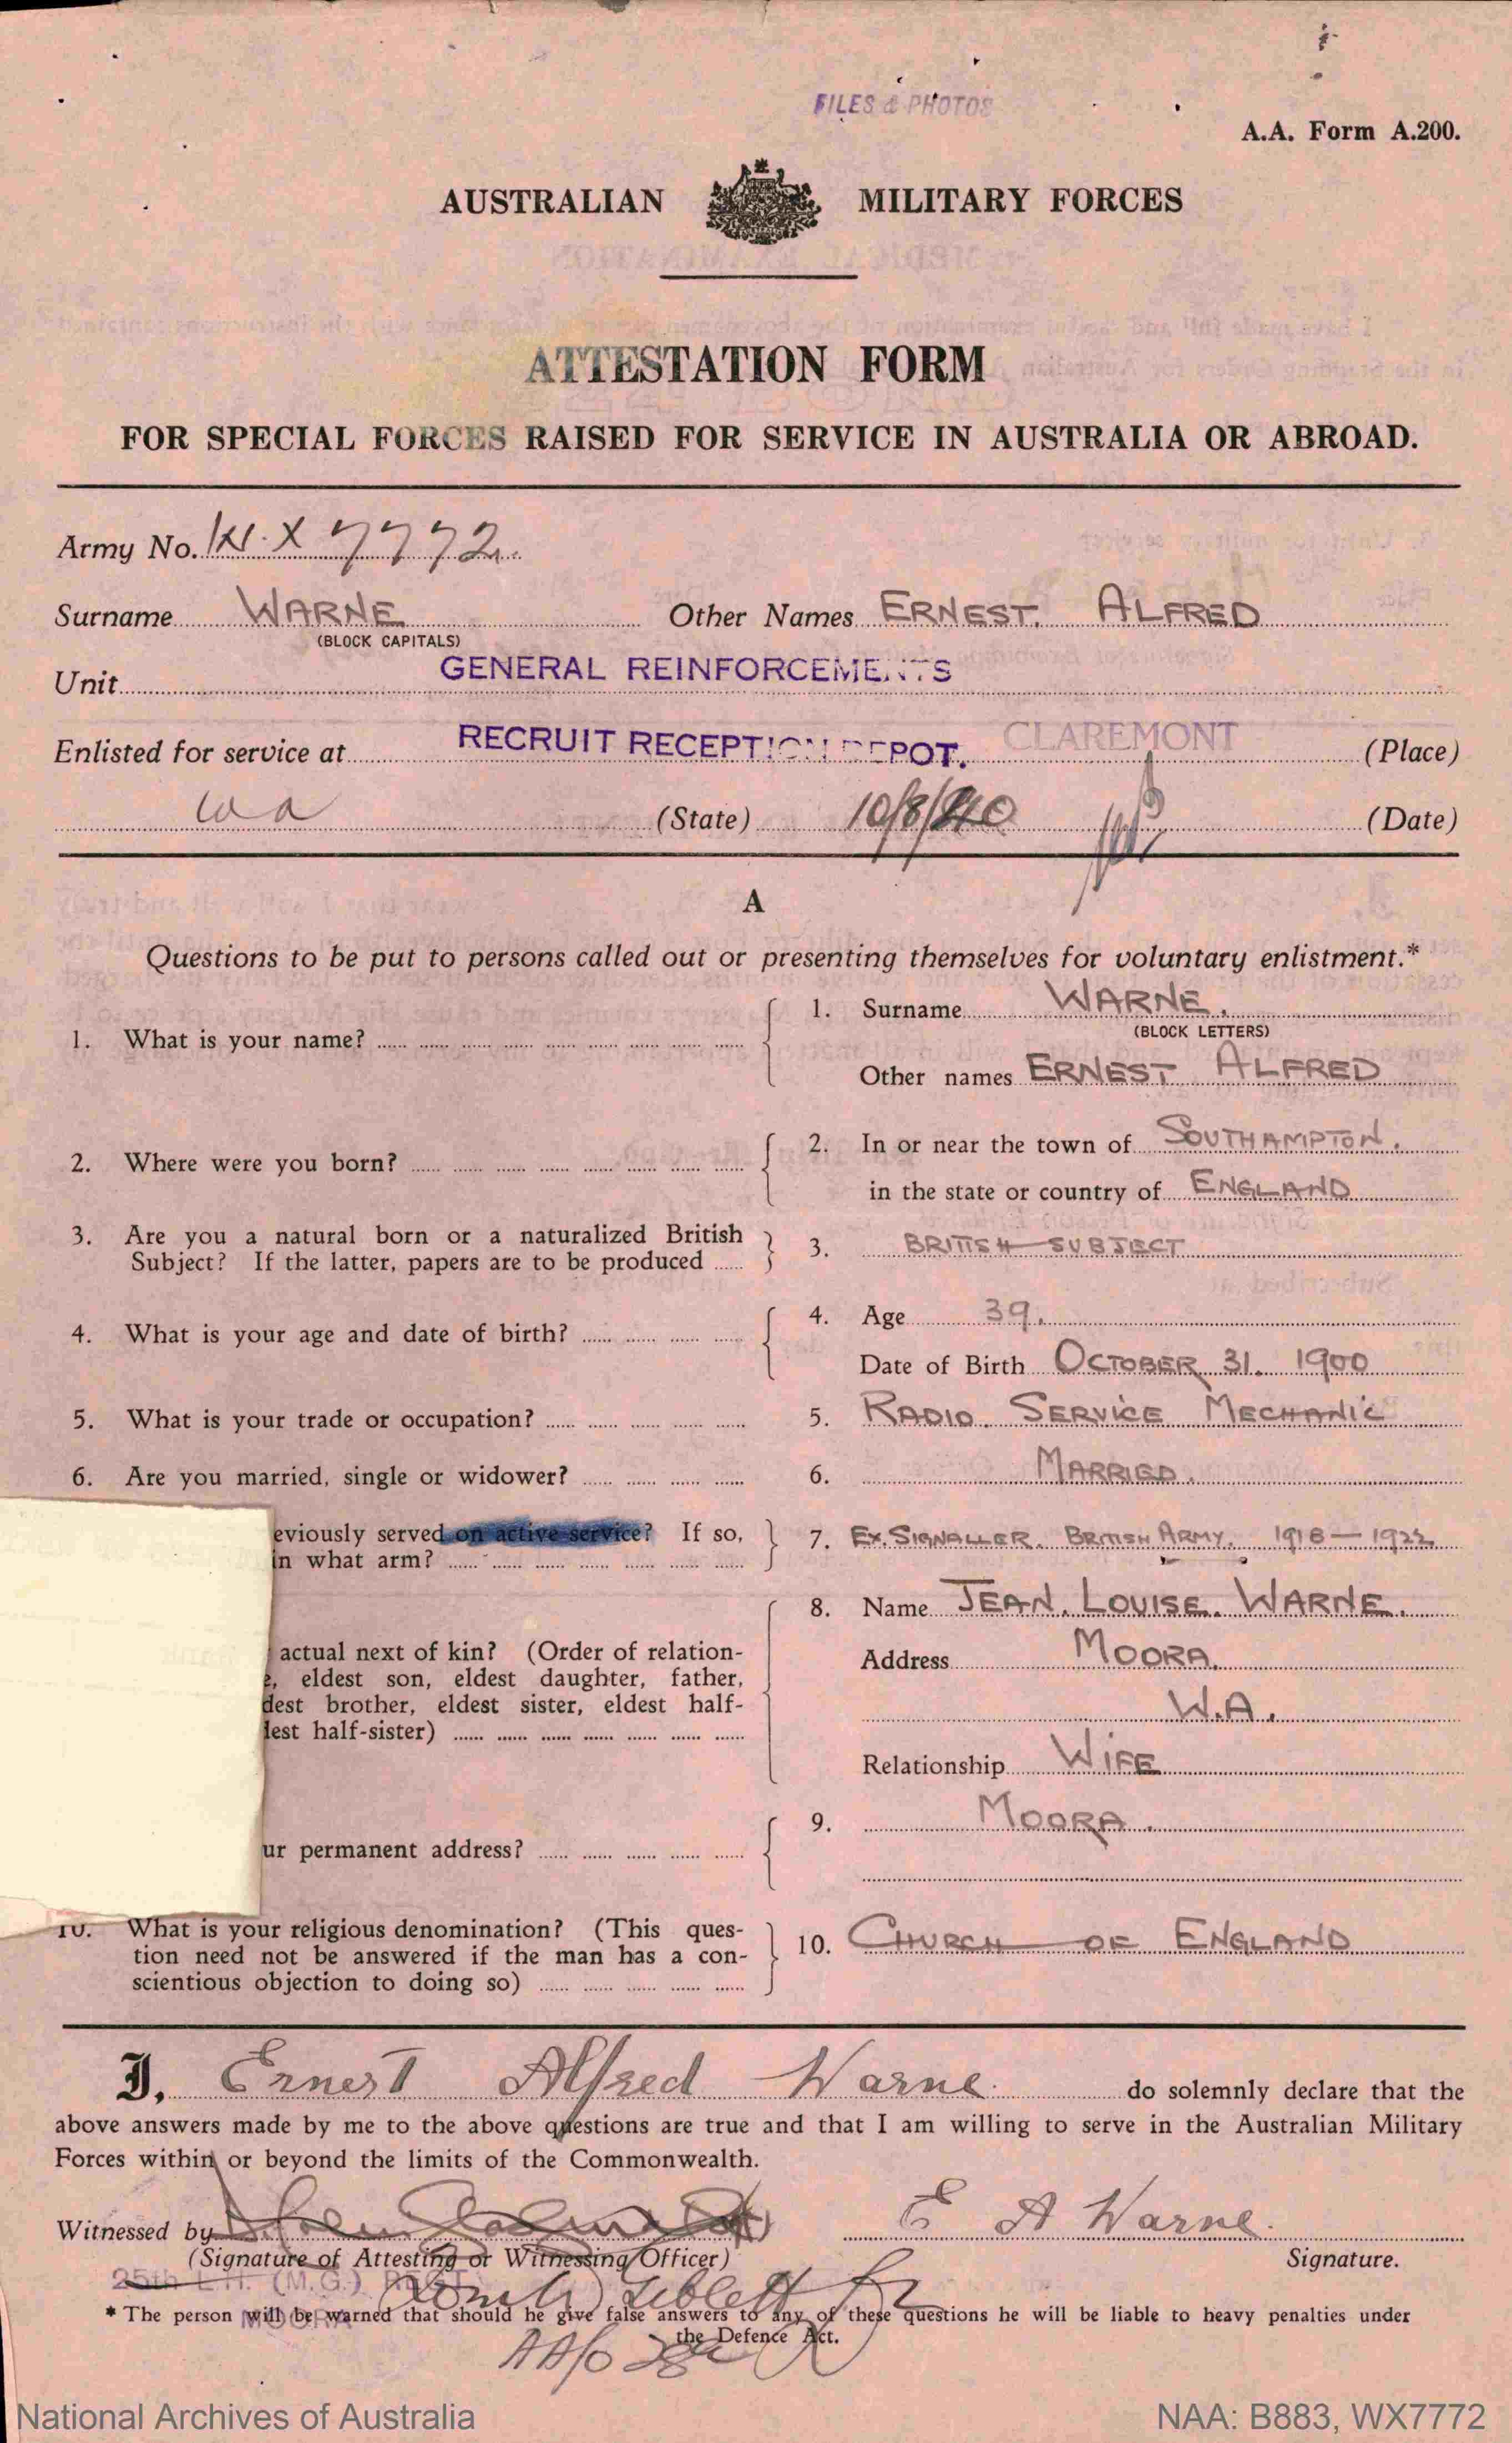 FILES & PHOTOS
A.A. Form A.200.
AUSTRALIAN MILITARY FORCES
ATTESTATION FORM
FOR SPECIAL FORCES RAISED FOR SERVICE IN AUSTRALIA OR ABROAD.
Army No. W.X 7772
Surname WARNE Other Names ERNEST. ALFRED
(BLOCK CAPITALS)
Unit GENERAL REINFORCEMENTS
Enlisted for service at RECRUIT RECEPTION DEPOT. CLAREMONT (Place)
wa (State) 10/8/40 (Date)
A
Questions to be put to persons called out or presenting themselves for voluntary enlistment.*
1. What is your name? 1. Surname WARNE.
(BLOCK LETTERS)
Other names ERNEST ALFRED
2. Where were you born? 2. In or near the town of SOUTHAMPTON.
in the state or country of ENGLAND
3. Are you a natural born or a naturalized British
Subject? If the latter, papers are to be produced 3. BRITISH SUBJECT
4. What is your age and date of birth? 4. Age 39.
Date of Birth OCTOBER 31. 1900
5. What is your trade or occupation? 5. RADIO. SERVICE MECHANIC
6. Are you married, single or widower? 6. MARRIED.
eviously served on active service? If so,
in what arm? 7. EX. SIGNALLER. BRITISH ARMY. 1918—1922
8. Name JEAN. LOUISE. WARNE.
actual next of kin? (Order of relation-
Address MOORA.
e, eldest son, eldest daughter, father,
dest brother, eldest sister, eldest half-
W.A.
lest half-sister)
Relationship WIFE
9. MOORA.
ur permanent address?
10. What is your religious denomination? (This ques-
tion need not be answered if the man has a con-
scientious objection to doing so) 10. CHURCH OF ENGLAND
I, Ernest Alfred Warne. do solemnly declare that the
above answers made by me to the above questions are true and that I am willing to serve in the Australian Military
Forces within or beyond the limits of the Commonwealth.
Witnessed by E A Warne.
(Signature of Attesting or Witnessing Officer) Signature.
25th L.H. (M.G.) REGT.
MOORA
* The person will be warned that should he give false answers to any of these questions he will be liable to heavy penalties under
the Defence Act.
National Archives of Australia NAA: B883, WX7772